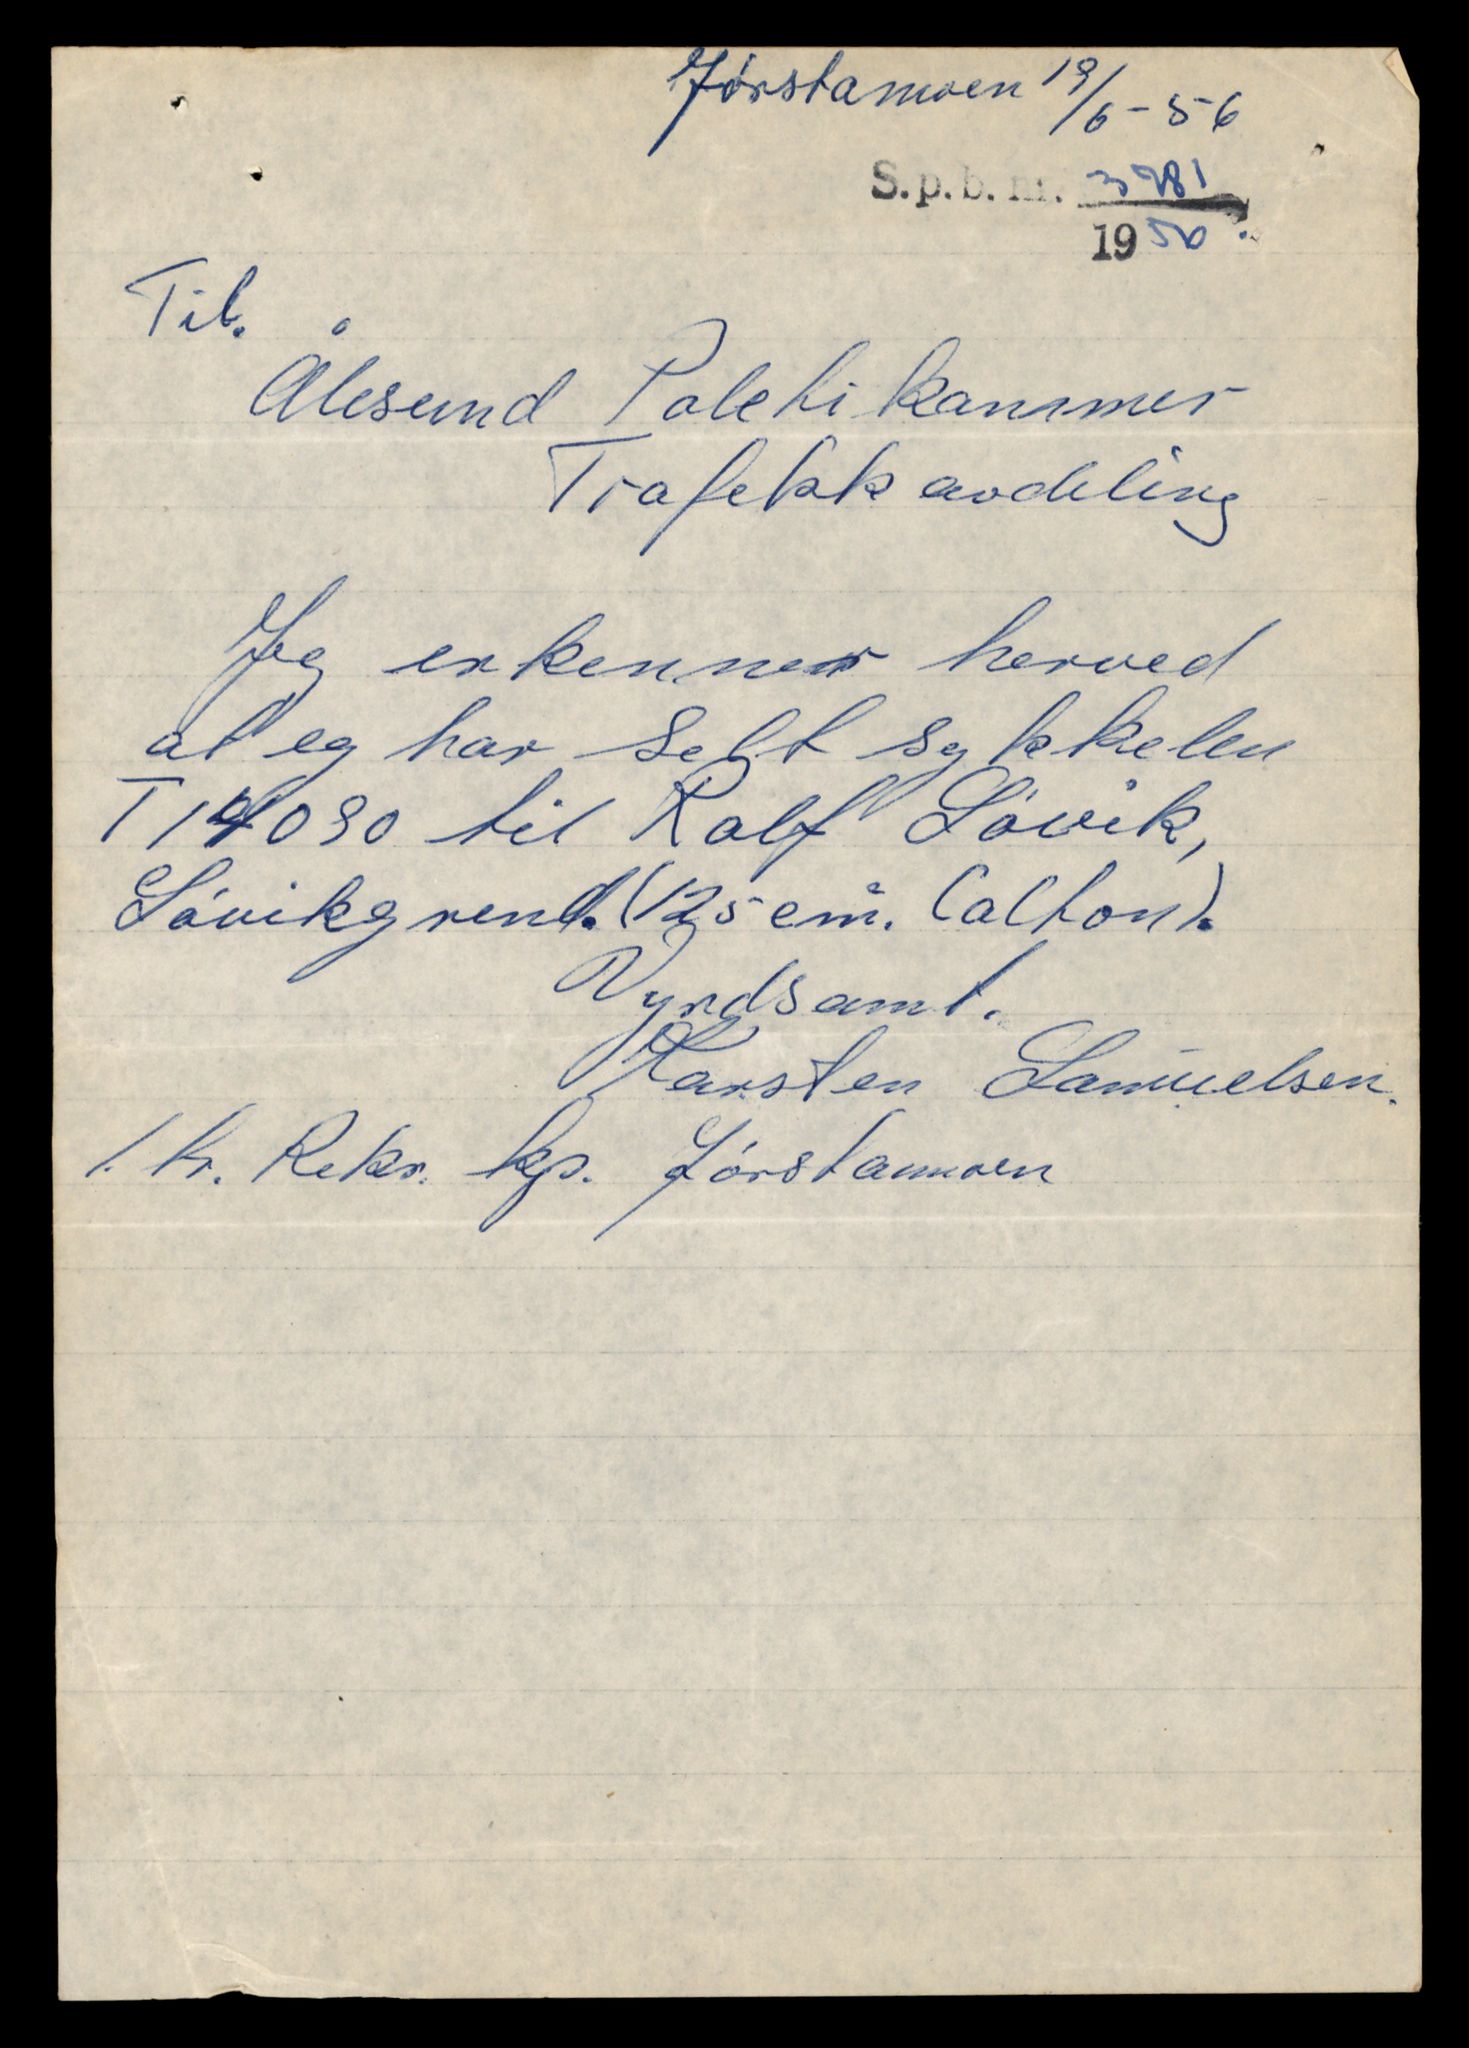 Jørstamoen 19/6-56
S.p.b. nr. 3281
1956.
Til.
Ålesund Poletikammer
Trafekkavdeling
Jeg erkenner herved
at eg har selt sykkelen
T14090 til Ralf Løvik,
Løvikgrend. (125 cm. Calton).
Vyrdsamt.
Karsten Samuelsen.
1. tr. Rekr. kp. Jørstamoen